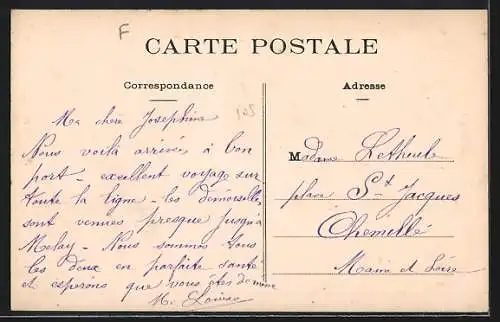 F
CARTE POSTALE
Correspondance
Adresse
105
Ma chère Joséphine
Nous voilà arrivés à bon
port - excellent voyage sur
toute la ligne - les demoiselles
sont venues presque jusqu'à
Melay - Nous sommes tous
les deux en parfaite santé
et espérons que vous êtes de même
M.
Madame Lethuele
place St Jacques
Chemillé
Maine et Loire